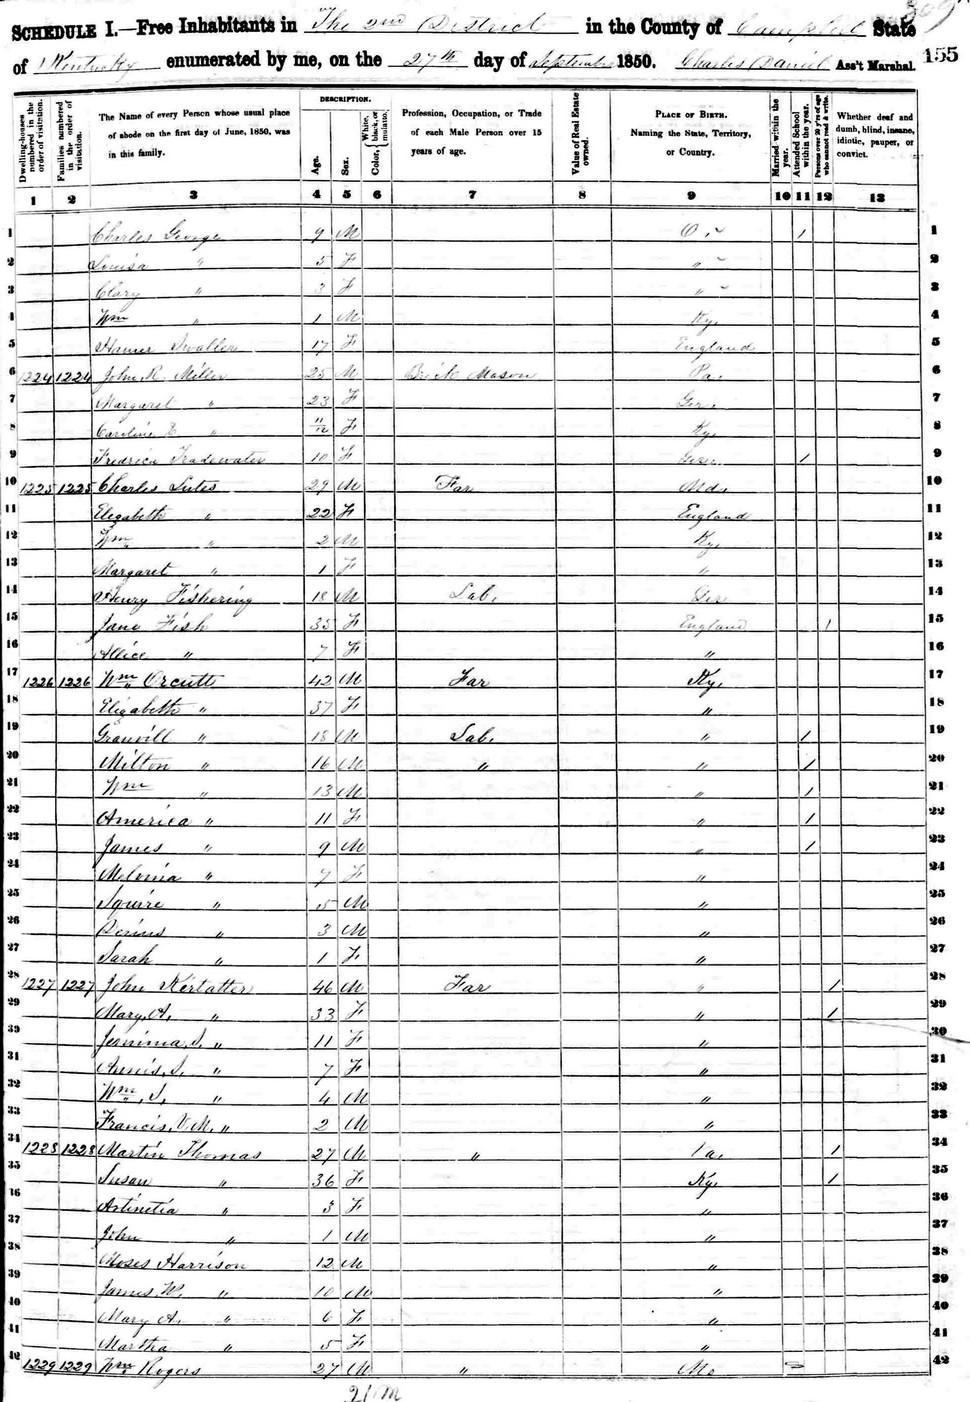 SCHEDULE I.—Free Inhabitants in The 2nd District in the County of Campbell State
of Kentucky enumerated by me, on the 27th day of September 1850. Charles Daniel Ass't Marshal. 155
Dwelling-houses numbered in the order of visitation. Families numbered in the order of visitation. The Name of every Person whose usual place of abode on the first day of June, 1850, was in this family. DESCRIPTION. Age. Sex. Color, White, black, or mulatto. Profession, Occupation, or Trade of each Male Person over 15 years of age. Value of Real Estate owned. PLACE OF BIRTH. Naming the State, Territory, or Country. Married within the year. Attended School within the year. Persons over 20 y'rs of age who cannot read & write. Whether deaf and dumb, blind, insane, idiotic, pauper, or convict.
1 2 3 4 5 6 7 8 9 10 11 12 13
1 Charles George 9 M O. 1 1
2 Louisa " 5 F " 2
3 Clary " 3 F " 3
4 Wm " 1 M Ky. 4
5 17 F England 5
6 1224 1224 John R. Miller 25 M Brick Mason Pa. 6
7 Margaret " 23 F Ger. 7
8 Caroline " 11/12 F Ky. 8
9 Fredrica Tradewater 10 F Ger. 1 9
10 1225 1225 Charles Lutes 29 M Far Md. 10
11 Elizabeth " 22 F England 11
12 Wm " 2 M Ky. 12
13 Margaret " 1 F " 13
14 Henry Fishering 18 M Lab. Ger 14
15 Jane Fish 35 F England 1 15
16 Allice " 7 F " 16
17 1226 1226 Wm Orcutt 42 M Far Ky. 17
18 Elizabeth " 37 F " 18
19 Granvill " 18 M Lab. " 1 19
20 Milton " 16 M " " 1 20
21 Wm " 13 M " 1 21
22 America " 11 F " 1 22
23 James " 9 M " 1 23
24 Melonia " 7 F " 24
25 Squire " 5 M " 25
26 " 3 M " 26
27 Sarah " 1 F " 27
28 1227 1227 John Kertatter 46 M Far " 1 28
29 Mary, A, " 33 F " 1 29
30 Jemima, " 11 F " 30
31 " 7 F " 31
32 Wm, " 4 M " 32
33 Francis, M, " 2 M " 33
34 1228 1228 Martin Thomas 27 M " 1 34
35 Susan " 36 F Ky. 1 35
36 Artinetia " 3 F " 36
37 John " 1 M " 37
38 Moses Harrison 12 M " 38
39 James W. " 10 M " 39
40 Mary A. " 6 F " 40
41 Martha " 5 F " 41
42 1229 1229 Wm Rogers 27 M " Mo 42
21 M